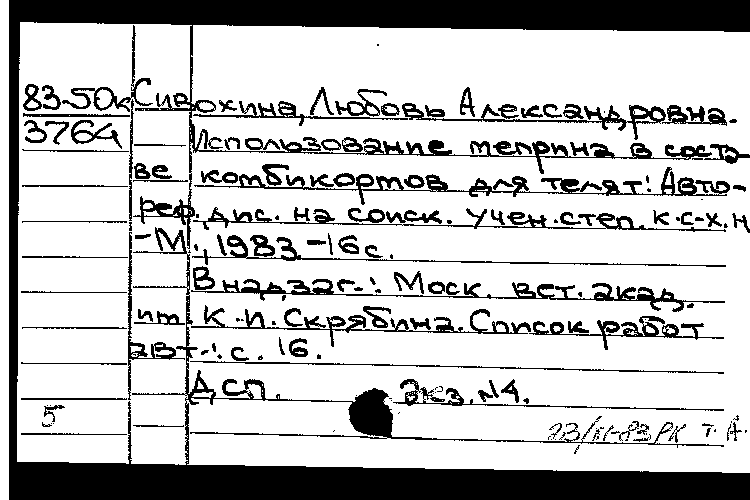 83-50к Сивохина, Любовь Александровна.
376А Использование теприна в соста-
ве комбикормов для телят: Авто-
реф. дис. на соиск. учен. степ. к. с-х. н
- М., 1983 - 16 с.
В надзаг.: Моск. вет. акад.
им. К. И. Скрябина. Список работ
авт.: с. 16.
ДСП. Экз. N4.
5
23/XI-83 РК т. А.